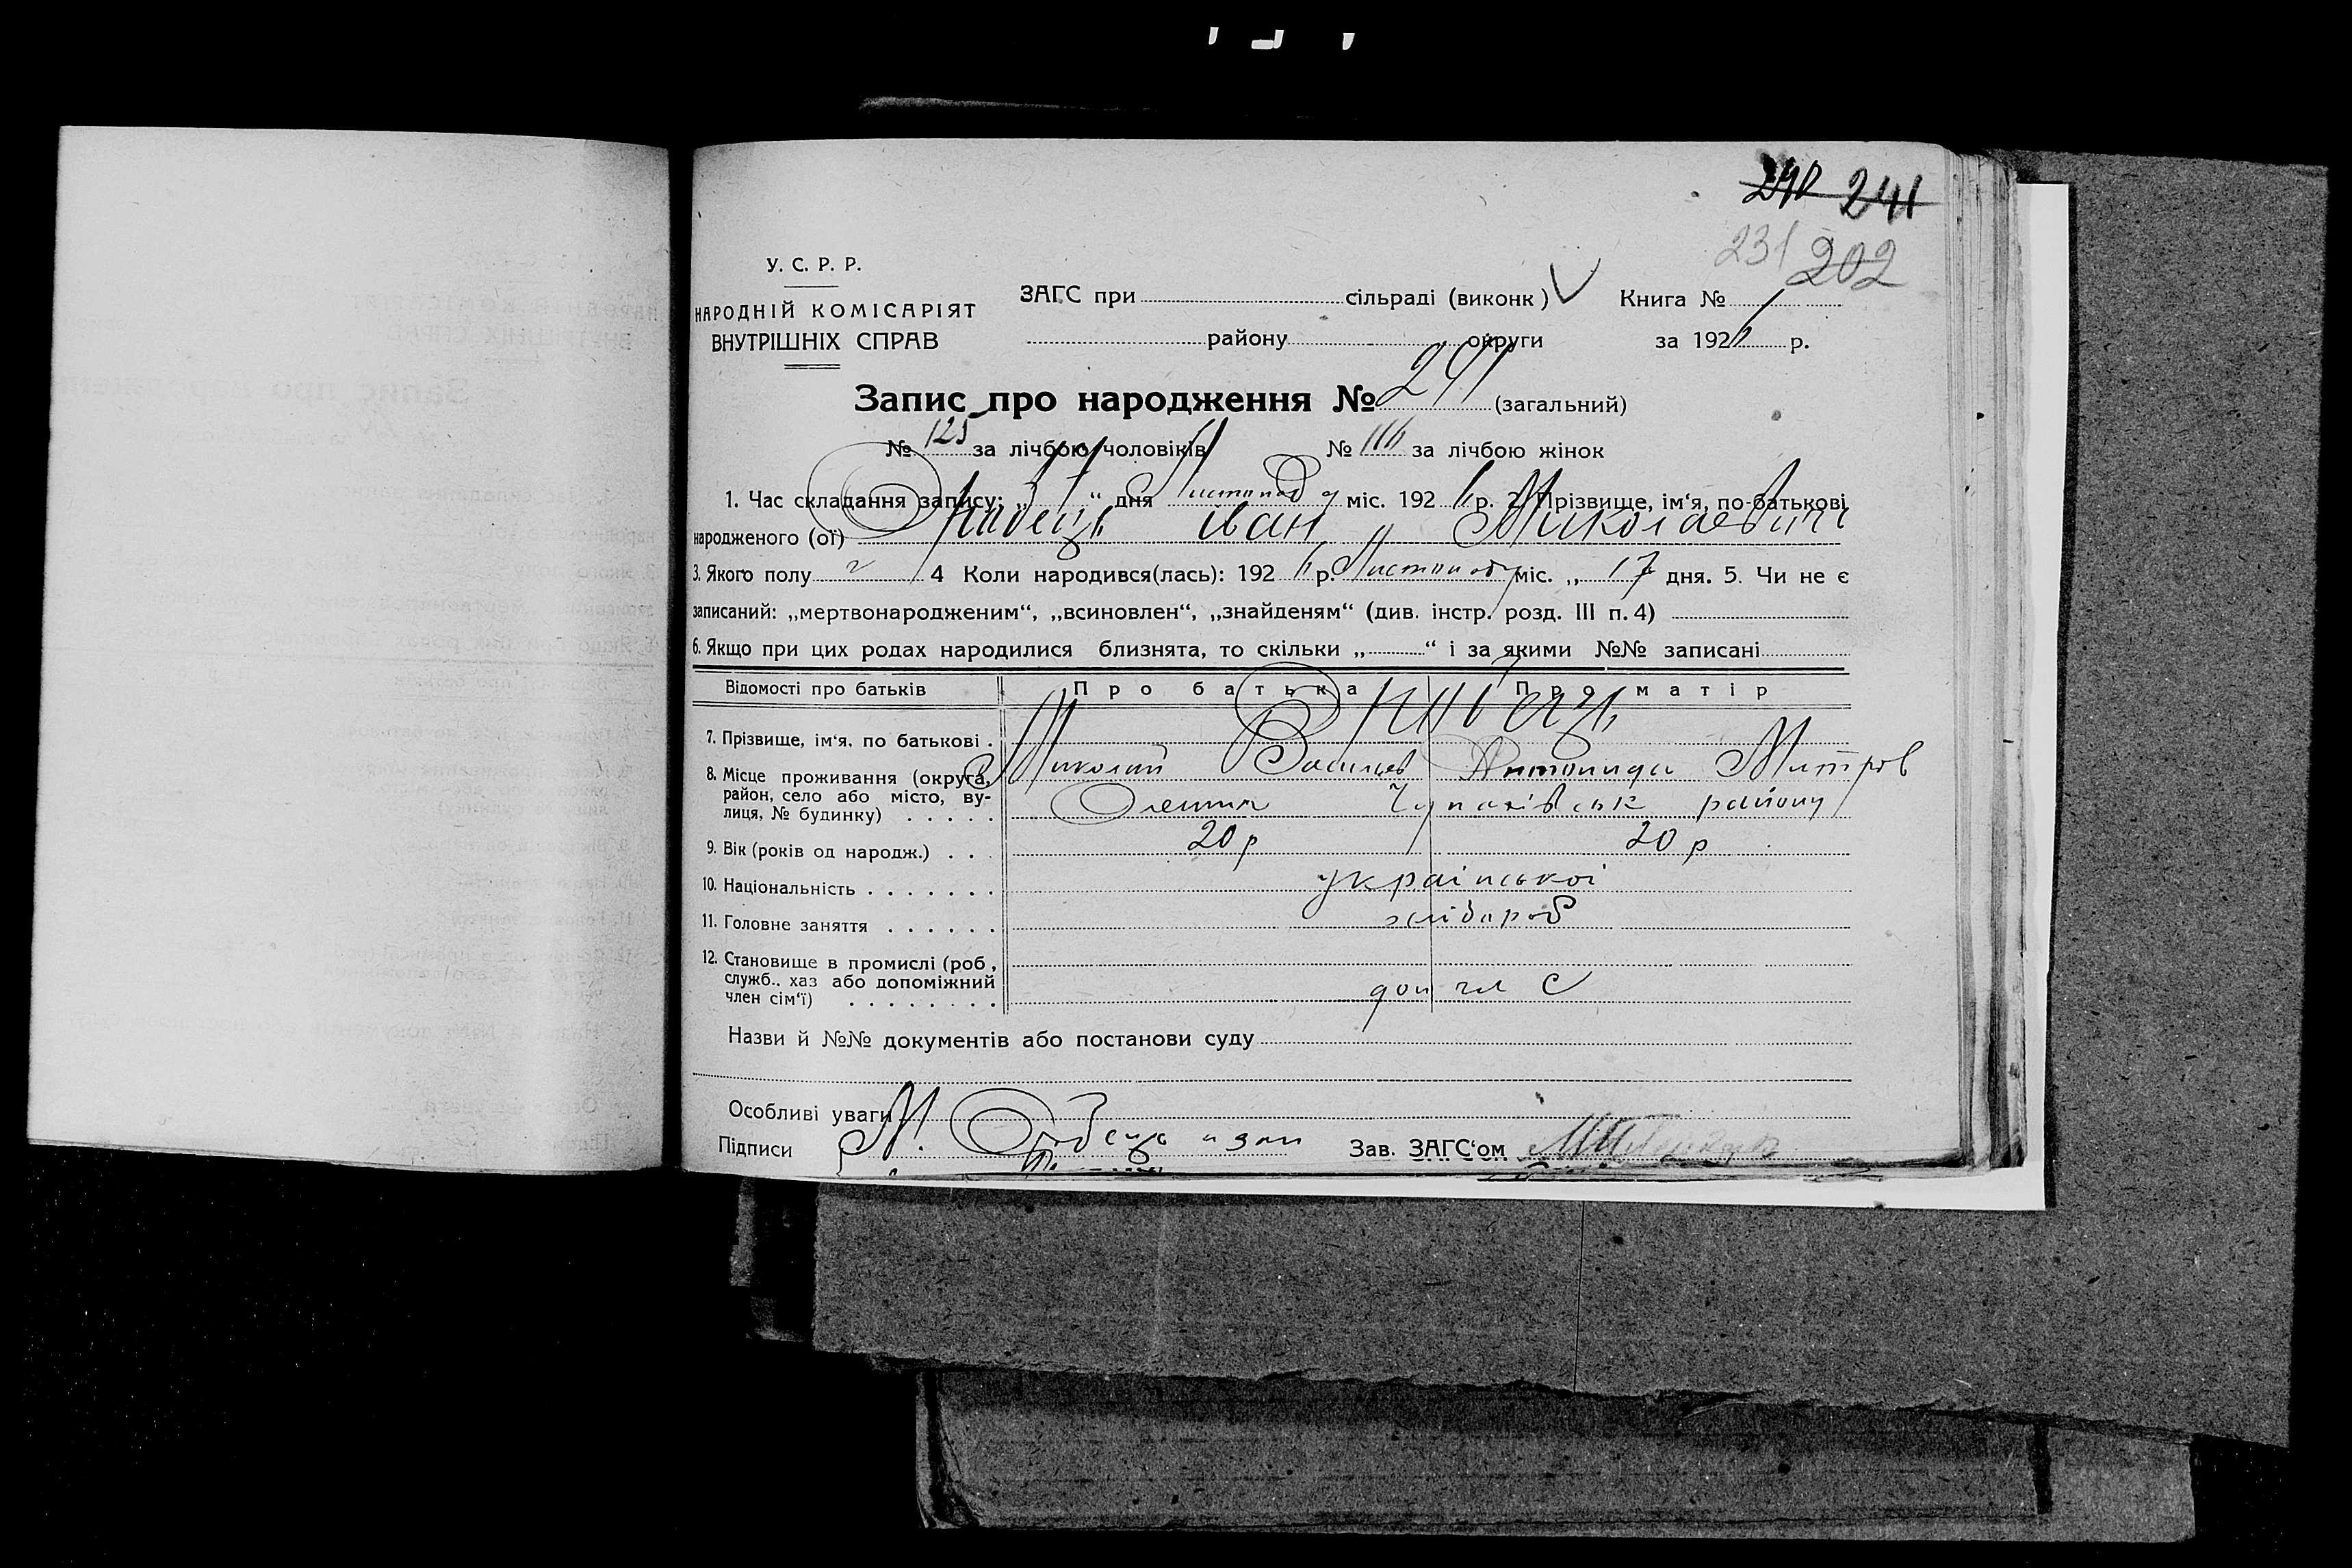 240 241
231 202
У. С. Р. Р.
НАРОДНІЙ КОМІСАРІЯТ
ВНУТРІШНІХ СПРАВ
ЗАГС при сільраді (виконк) Книга № 1
району округи за 192 р.
Запис про народження № 241 (загальний)
№ 125 за лічбою чоловіків № 116 за лічбою жінок
1. Час складання запису: „ “ дня Листопаду міс. 192 р. 2. Прізвище, ім‘я, по-батькові
народженого (ої) Іван Миколаєвич
3. Якого полу ч 4 Коли народився(лась): 192 р. Листопаду міс. „ 17 дня. 5. Чи не є
записаний: „мертвонародженим“, „всиновлен“, „знайденям“ (див. інстр. розд. III п. 4)
6. Якщо при цих родах народилися близнята, то скільки „ “ і за якими №№ записані
Відомості про батьків Про батька Про матір
7. Прізвище, ім‘я, по батькові .
Миколай Васильєв Митров
8. Місце проживання (округа,
район, село або місто, ву-
лиця, № будинку) . . . . . Олешня Чупахівськ району
9. Вік (років од народж.) . . . 20 р 20 р
10. Національність . . . . . . . української
11. Головне заняття . . . . . . хлібороб
12. Становище в промислі (роб,
служб.. хаз або допоміжний
член сім‘ї) . . . . . . . . доп чл С
Назви й №№ документів або постанови суду
Особливі уваги
Підписи М. Зав. ЗАГС‘ом